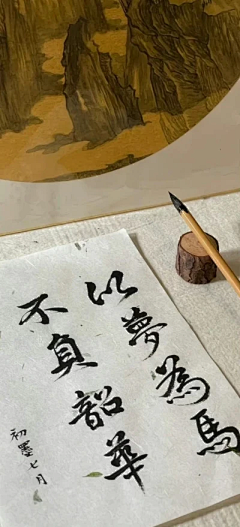 以夢為馬
不負韶華
初墨七月